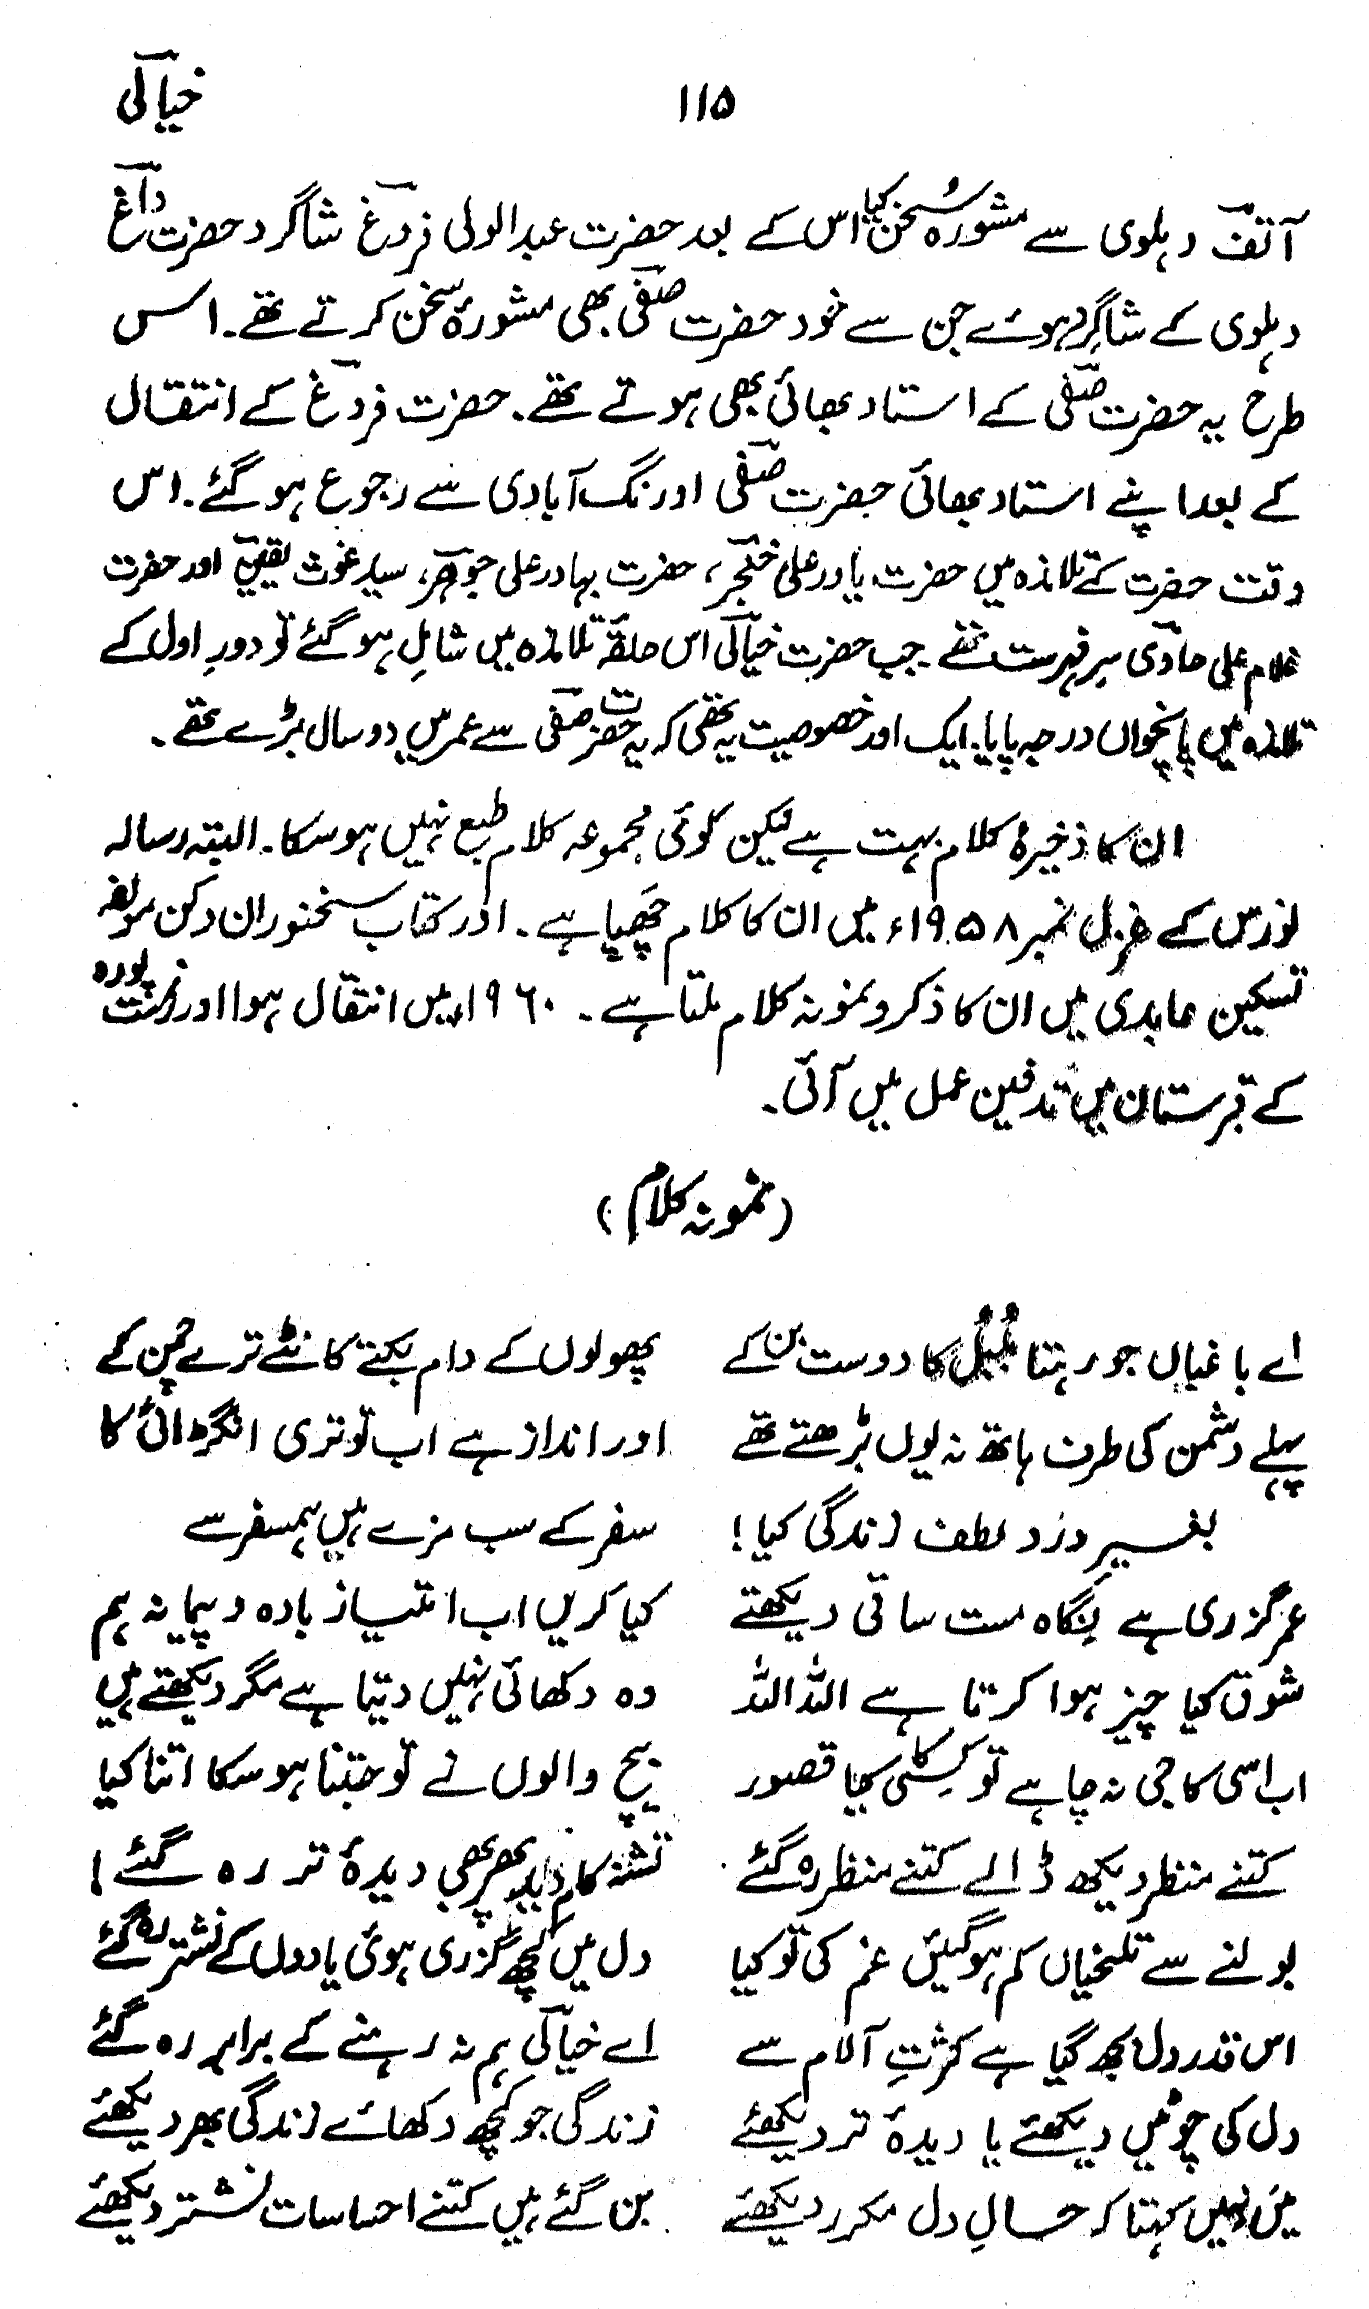 ۱۱۵ خیالی
آتف دہلوی سے مشورہ سخن کیا اس کے بعد حضرت عبدالولی فروغ شاگرد حضرت داغ
دہلوی کے شاگرد ہوئے جن سے خود حضرت صفی بھی مشورۂ سخن کرتے تھے۔ اس
طرح یہ حضرت صفی کے استاد بھائی بھی ہوتے تھے۔ حضرت فروغ کے انتقال
کے بعد اپنے استاد بھائی حضرت صفی اورنگ آبادی سے رجوع ہو گئے۔ اس
وقت حضرت کے تلامذہ میں حضرت یاور علی خنجر، حضرت بہادر علی جوہر، سید غوث یقین اور حضرت
غلام علی حاوی سرفہرست تھے۔ جب حضرت خیالی اس حلقۂ تلامذہ میں شامل ہو گئے تو دورِ اول کے
تلامذہ میں پانچواں درجہ پایا۔ ایک اور خصوصیت یہ تھی کہ یہ حضرت صفی سے عمر میں دو سال بڑے تھے۔
ان کا ذخیرۂ کلام بہت ہے لیکن کوئی مجموعہ کلام طبع نہیں ہو سکا۔ البتہ رسالہ
نورس کے غزل نمبر ۱۹۵۸ء میں ان کا کلام چھپا ہے۔ اور کتاب سخنوران دکن مولفہ
تسکین عابدی میں ان کا ذکر و نمونہ کلام ملتا ہے۔ ۱۹۶۰ء میں انتقال ہوا اور زینت پورہ
کے قبرستان میں تدفین عمل میں آئی۔
(نمونہ کلام)
اے باغباں جو رہتا بُلبُل کا دوست بن کے پھولوں کے دام بکتے کانٹے ترے چمن کے
پہلے دشمن کی طرف ہاتھ نہ یوں بڑھتے تھے اور انداز ہے اب تو تری انگڑائی کا
بغیرِ درد لطف زندگی کیا! سفر کے سب مزے ہیں ہمسفر سے
عمر گزری ہے نگاہ مست ساقی دیکھتے کیا کریں اب امتیاز بادہ و پیمانہ ہم
شوق کیا چیز ہوا کرتا ہے اللہ اللہ وہ دکھائی نہیں دیتا ہے مگر دیکھتے ہیں
اب اسی کا جی نہ چاہے تو کسی کا کیا قصور بیچ والوں نے تو جتنا ہو سکا اتنا کیا
کتنے منظر دیکھ ڈالے کتنے منظر رہ گئے تشنہ کام دید پھر بھی دیدۂ تر رہ گئے!
بولنے سے تلخیاں کم ہو گئیں غم کی تو کیا دل میں کچھ گزری ہوئی یادوں کے نشتر رہ گئے
اس قدر دل بجھ گیا ہے کثرتِ آلام سے اے خیالی ہم نہ رہنے کے برابر رہ گئے
دل کی چوٹیں دیکھئے یا دیدۂ تر دیکھئے زندگی جو کچھ دکھائے زندگی بھر دیکھئے
میں نہیں کہتا کہ حالِ دل مکرر دیکھئے بن گئے ہیں کتنے احساسات نشتر دیکھئے